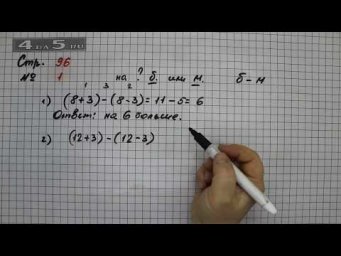 4DA5.RU
Стр. 96
№ 1 на ? б. или м. б - м
1 3 2
1) (8+3)-(8-3)=11-5=6
Ответ: на 6 больше.
2) (12+3)-(12-3)